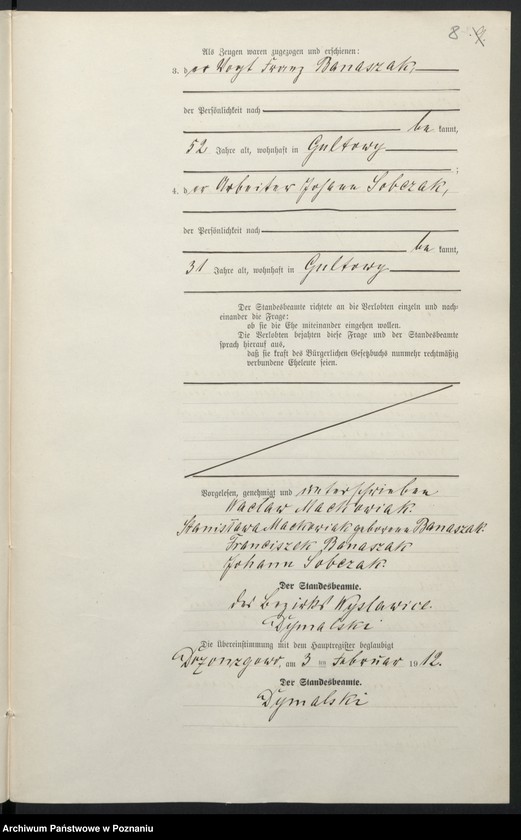 8
Als Zeugen waren zugezogen und erschienen:
3. der Vogt Franz Banaszak,
der Persönlichkeit nach
be kannt,
52 Jahre alt, wohnhaft in Gultowy
;
4. der Arbeiter Johann Sobczak,
der Persönlichkeit nach
be kannt,
31 Jahre alt, wohnhaft in Gultowy
Der Standesbeamte richtete an die Verlobten einzeln und nach-
einander die Frage:
ob sie die Ehe miteinander eingehen wollen.
Die Verlobten bejahten diese Frage und der Standesbeamte
sprach hierauf aus,
daß sie kraft des Bürgerlichen Gesetzbuchs nunmehr rechtmäßig
verbundene Eheleute seien.
Vorgelesen, genehmigt und unterschrieben
Wacław Maćkowiak.
Stanisława Maćkowiak geborene Banaszak.
Franciszek Banaszak
Johann Sobczak.
Der Standesbeamte.
des Bezirks Wyslawice.
Dymalski
Die Übereinstimmung mit dem Hauptregister beglaubigt
am 3 ten Februar 1912.
Der Standesbeamte.
Dymalski
Archiwum Państwowe w Poznaniu